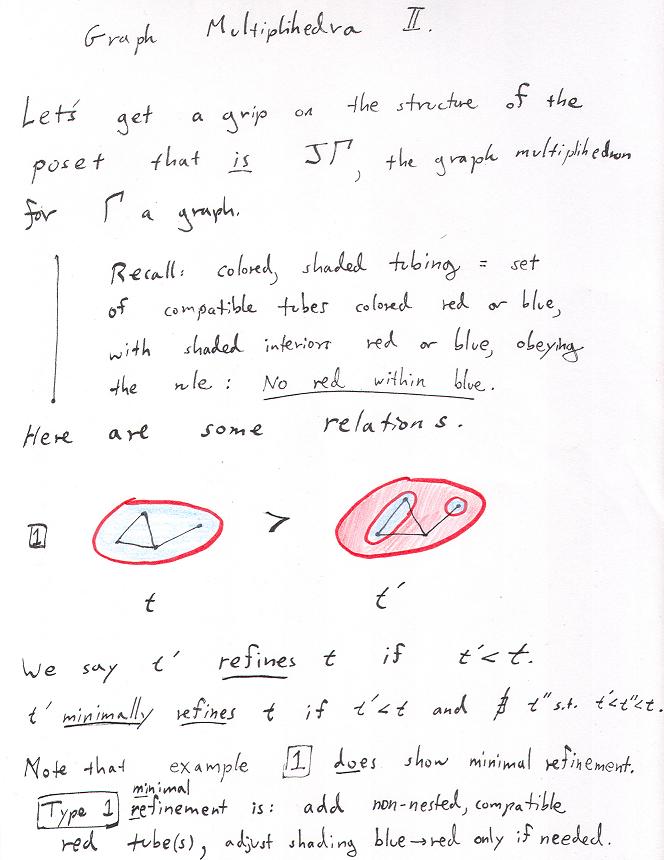 Graph Multiplihedra II.
Let's get a grip on the structure of the
poset that is JΓ, the graph multiplihedron
for Γ a graph.
Recall: colored, shaded tubing = set
of compatible tubes colored red or blue,
with shaded interiors red or blue, obeying
the rule: No red within blue.
Here are some relations.
1 >
t t′
We say t′ refines t if t′<t.
t′ minimally refines t if t′<t and ∄ t″ s.t. t′<t″<t.
Note that example 1 does show minimal refinement.
minimal
Type 1 refinement is: add non-nested, compatible
red tube(s), adjust shading blue→red only if needed.